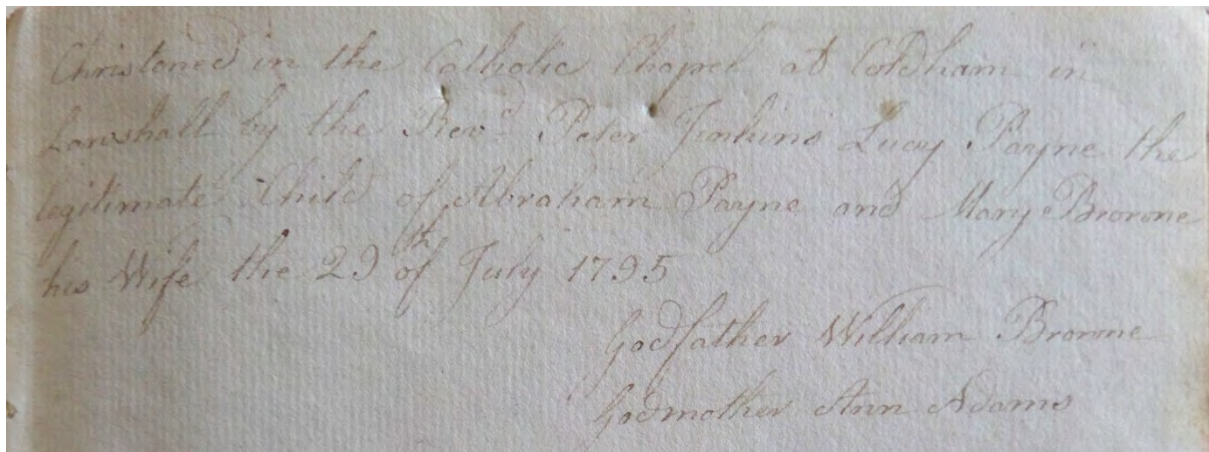 Christened in the Catholic Chapel at Coldham in
Lawshall by the Revd. Peter Jinkins Lucy Payne the
legitimate Child of Abraham Payne and Mary Browne
his Wife the 29th of July 1795
Godfather William Browne
Godmother Ann Adams